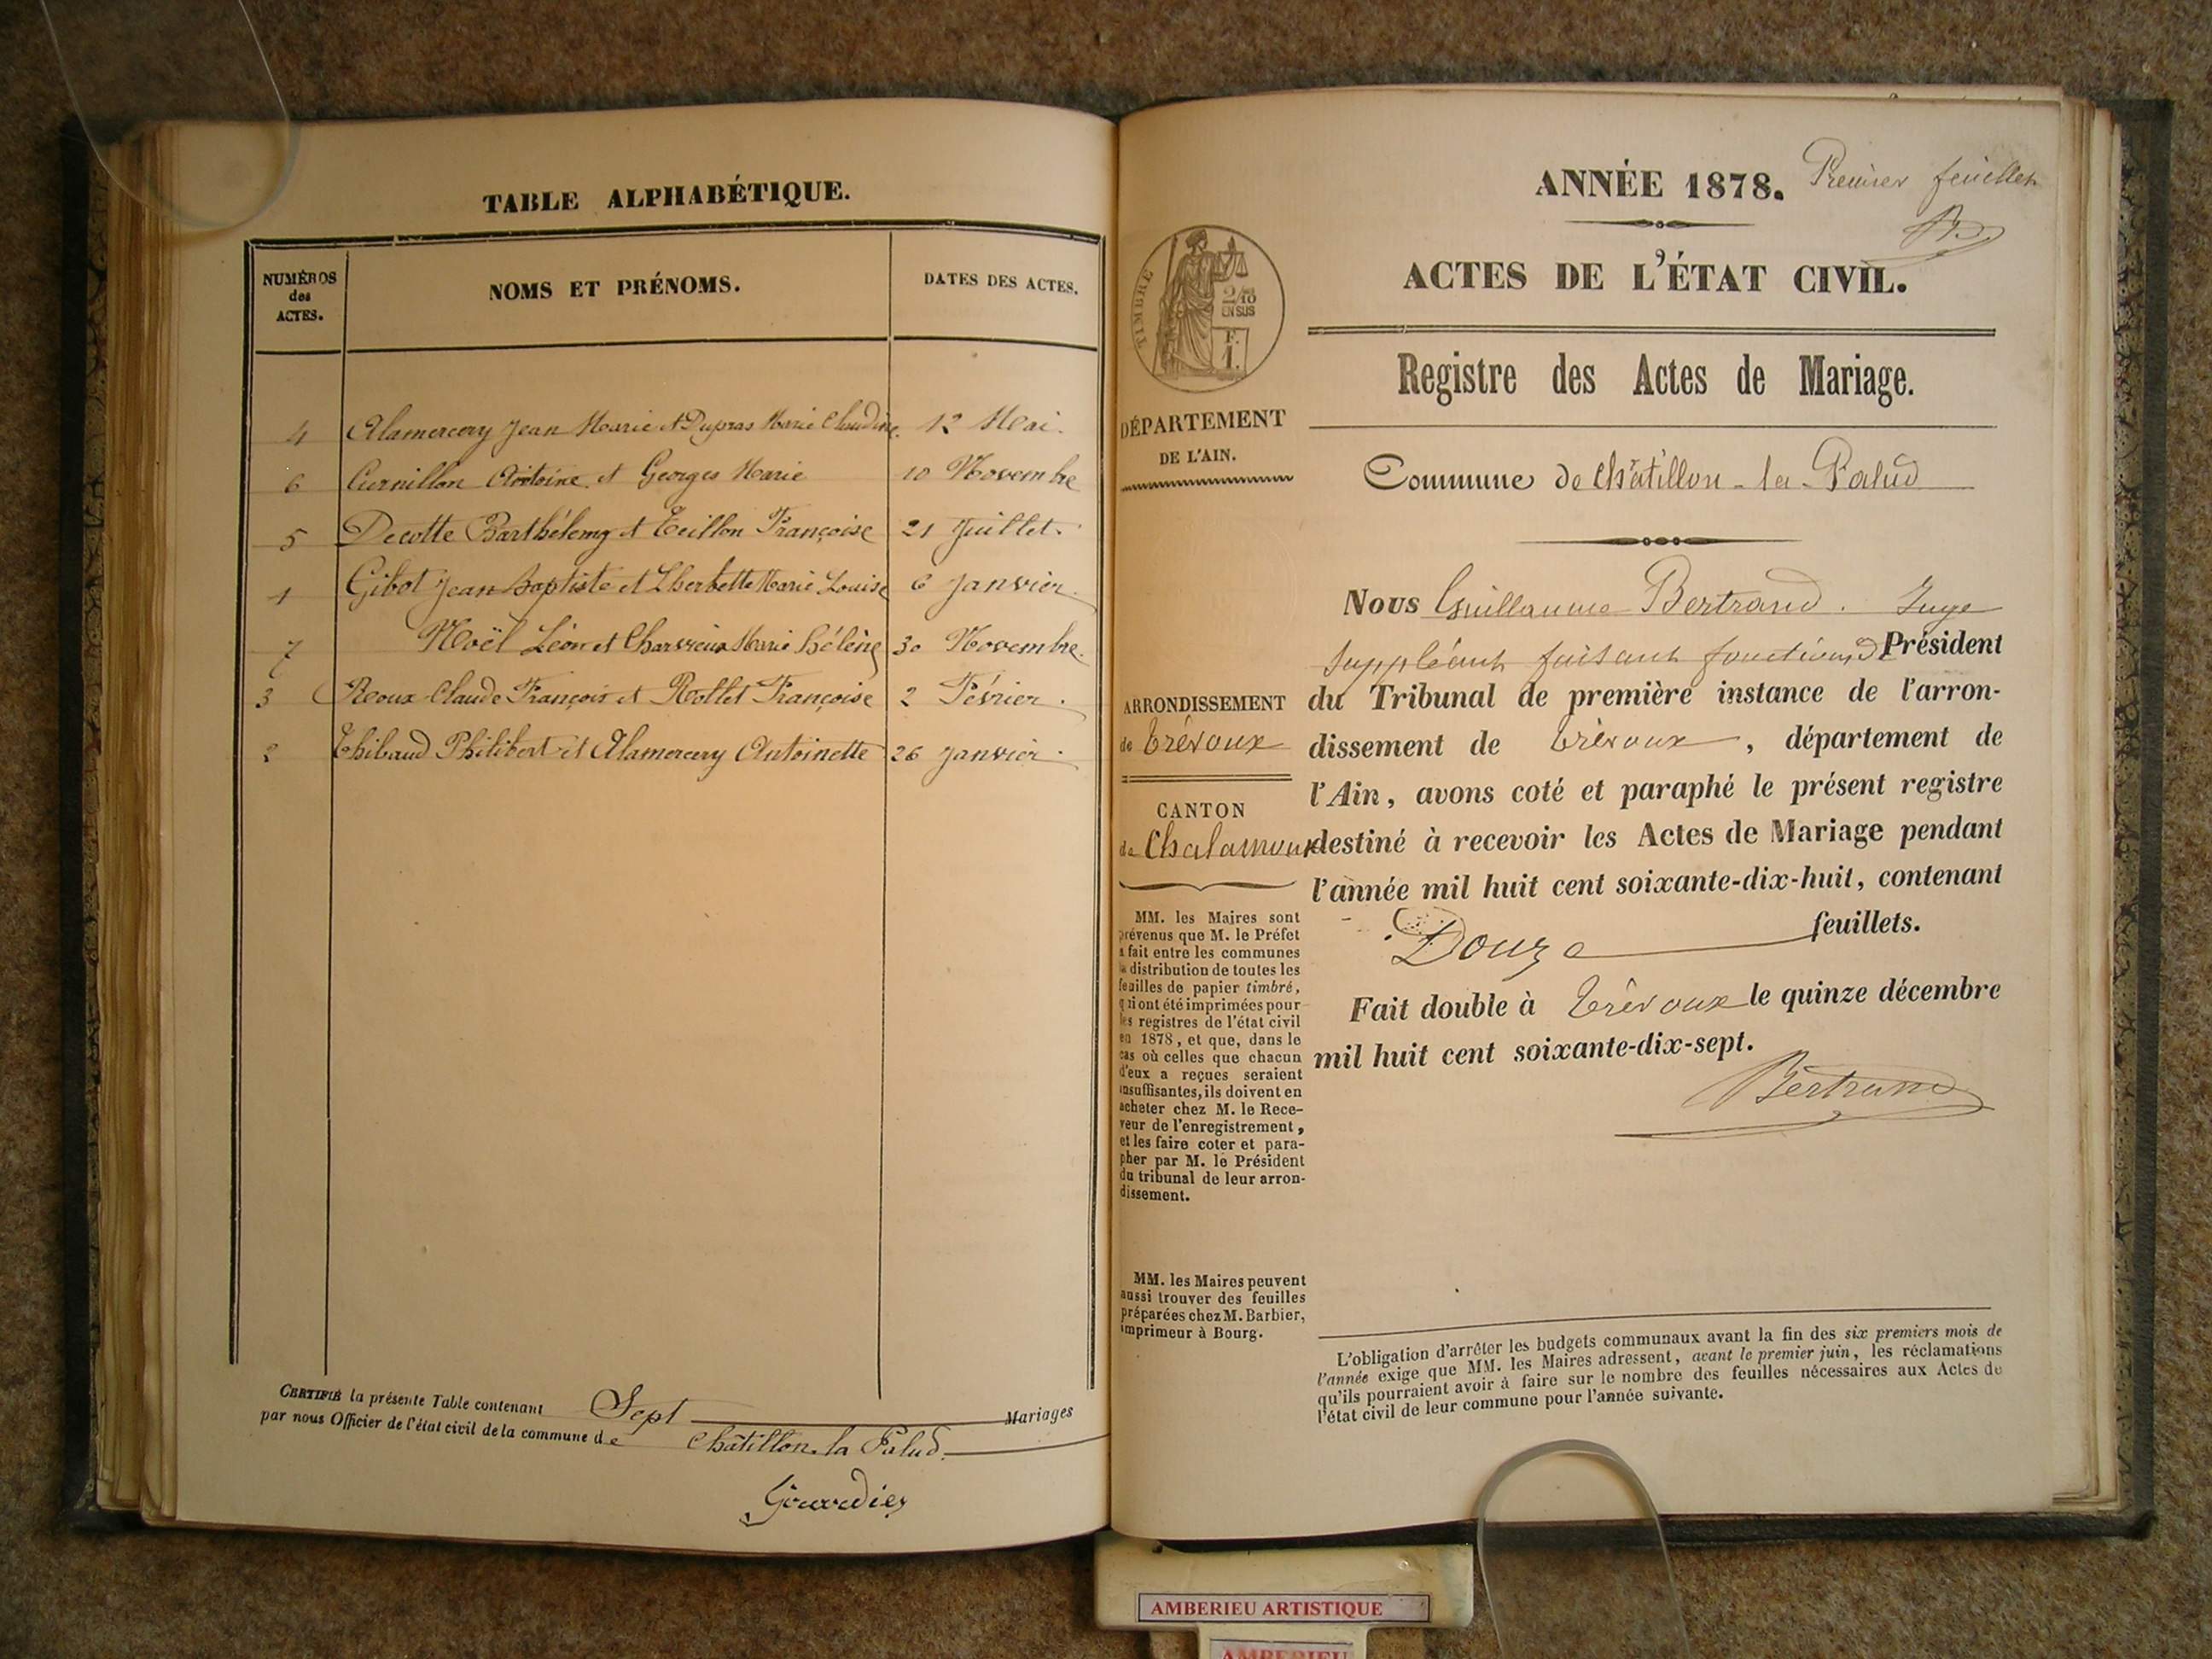 TABLE ALPHABÉTIQUE.
NUMÉROS
des
ACTES.
NOMS ET PRÉNOMS.
DATES DES ACTES.
4 Alamercery Jean Marie et Dupras Marie Claudine. 12 Mai.
6 Curnillon Antoine et Georges Marie 10 Novembre
5 Decotte Barthélemy et Teillon Françoise 21 Juillet.
1 Gibot Jean Baptiste et Lherbette Marie Louise 6 Janvier.
7 Noël Léon et Charvieux Marie Hélène 30 Novembre.
3 Roux Claude François et Rollet Françoise 2 Février.
2 Thibaud Philibert et Alamercery Antoinette 26 Janvier.
CERTIFIÉ la présente Table contenant Sept Mariages
par nous Officier de l'état civil de la commune de Châtillon la Palud.
Girardier
ANNÉE 1878. Premier feuillet
B.
ACTES DE L'ÉTAT CIVIL.
TIMBRE
2/10
EN SUS
F.
1.
Registre des Actes de Mariage.
DÉPARTEMENT
DE L'AIN.
Commune de Châtillon-la-Palud
Nous Guillaume Bertrand. Juge
Suppléant faisant fonctions de Président
du Tribunal de première instance de l'arron-
dissement de Trévoux, département de
l'Ain, avons coté et paraphé le présent registre
destiné à recevoir les Actes de Mariage pendant
l'année mil huit cent soixante-dix-huit, contenant
Douze feuillets.
Fait double à Trévoux le quinze décembre
mil huit cent soixante-dix-sept.
Bertrand
ARRONDISSEMENT
de Trévoux
CANTON
de Chalamont
MM. les Maires sont
prévenus que M. le Préfet
a fait entre les communes
la distribution de toutes les
feuilles de papier timbré,
qui ont été imprimées pour
les registres de l'état civil
en 1878, et que, dans le
cas où celles que chacun
d'eux a reçues seraient
insuffisantes, ils doivent en
acheter chez M. le Rece-
veur de l'enregistrement,
et les faire coter et para-
pher par M. le Président
du tribunal de leur arron-
dissement.
MM. les Maires peuvent
aussi trouver des feuilles
préparées chez M. Barbier,
imprimeur à Bourg.
L'obligation d'arrêter les budgets communaux avant la fin des six premiers mois de
l'année exige que MM. les Maires adressent, avant le premier juin, les réclamations
qu'ils pourraient avoir à faire sur le nombre des feuilles nécessaires aux Actes de
l'état civil de leur commune pour l'année suivante.
AMBERIEU ARTISTIQUE
AMBERIEU